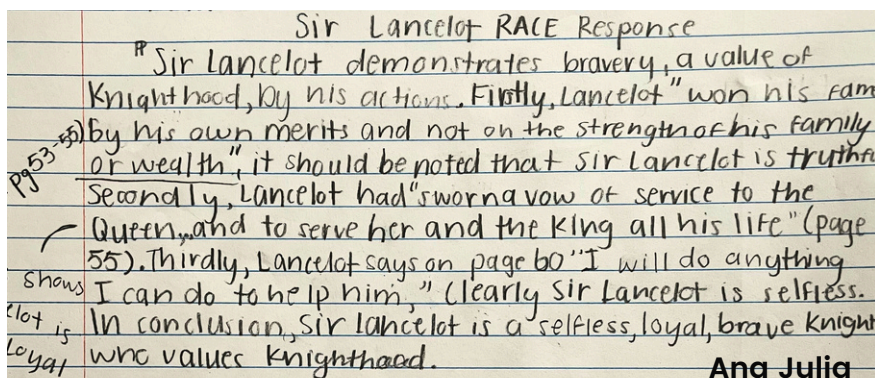 Sir Lancelot RACE Response
Sir Lancelot demonstrates bravery, a value of
Knighthood, by his actions. Firstly, Lancelot "won his fam
pg 53-55) by his own merits and not on the strength of his family
or wealth", it should be noted that Sir Lancelot is truthf
Secondly, Lancelot had "sworn a vow of service to the
Queen,... and to serve her and the King all his life" (page
55). Thirdly, Lancelot says on page 60 "I will do anything
shows I can do to help him," Clearly Sir Lancelot is selfless.
elot is In conclusion, Sir Lancelot is a selfless, loyal, brave Knight
Loyal who values Knighthood.
Ana Julia